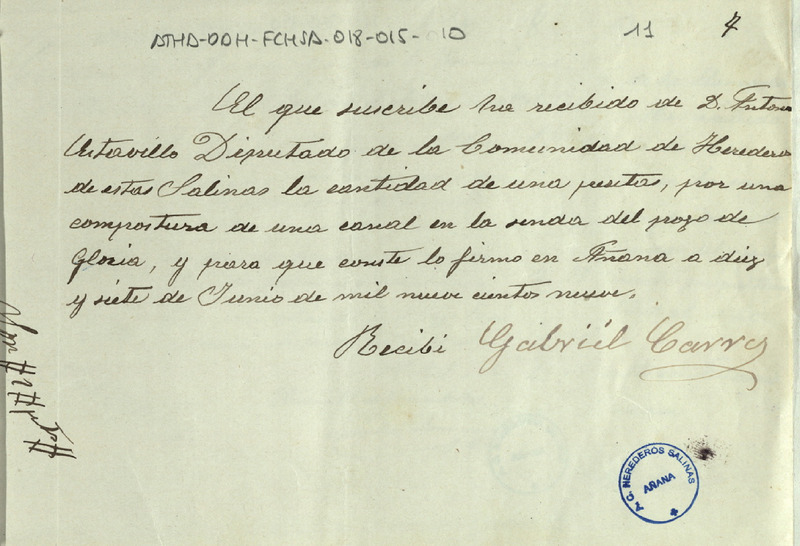 ATHA-DDH-FCHSA-018-015-10
11
4
El que suscribe ha recibido de D. Antonio
Ustavillo Diputado de la Comunidad de Herederos
de estas Salinas la cantidad de una pesetas, por una
compostura de una canal en la senda del pozo de
Gloria, y para que conste lo firmo en Añana a diez
y siete de Junio de mil nueve cientos nueve.
Recibi Gabriél Carro
A. G. HEREDEROS SALINAS
AÑANA